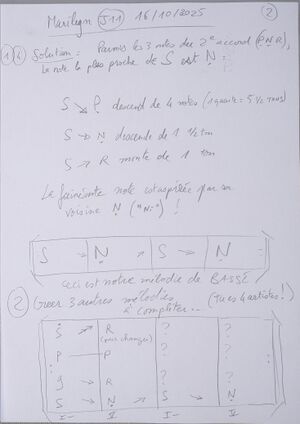 Marilyn J11 16/10/2025 (2)
1) Solution : Parmi les 3 notes du 2e accord (P N R),
la note la plus proche de S est N :
S ↘ P descend de 4 notes (1 quarte = 5 ½ tons)
S → N descend de 1 ½ ton
S → R monte de 1 ton
La note est aspirée par sa
voisine N ("Ni") !
S → N → S → N
Ceci est notre mélodie de BASSE
2) Créer 3 autres mélodies (Tu es 4 artistes !)
à compléter...
S → R ? ?
P — P ? ?
g → R ? ?
S → N → S → N
I- V I- V